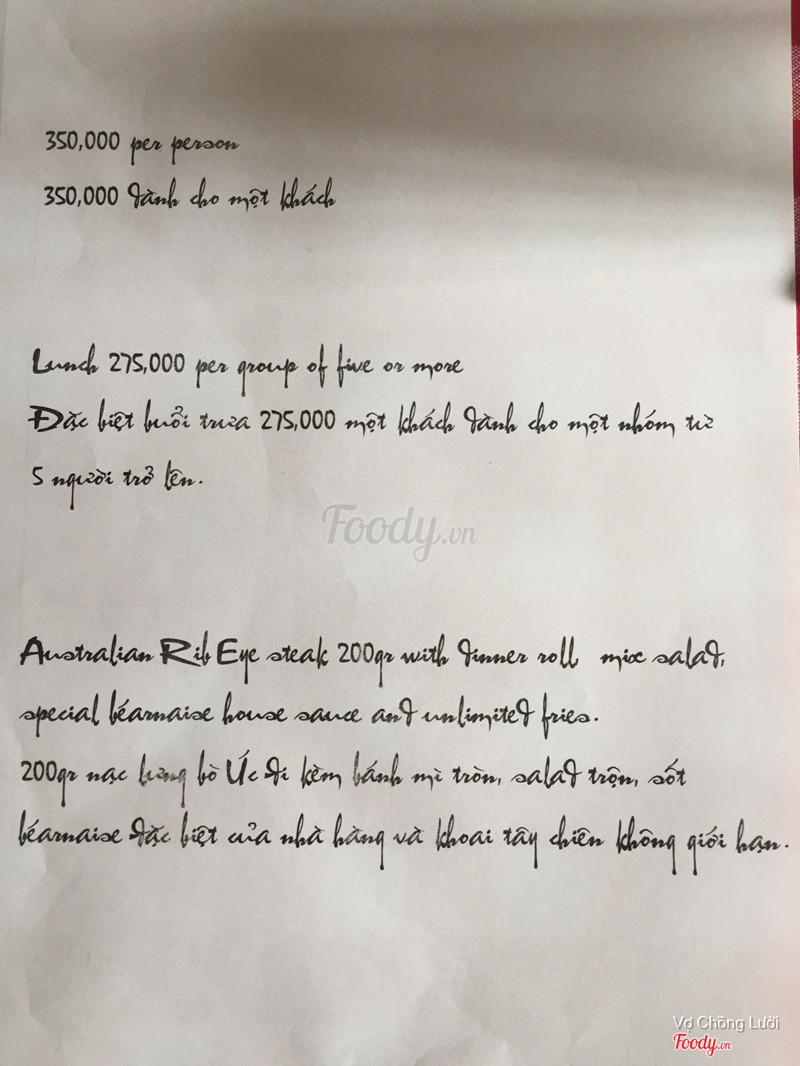 350,000 per person
350,000 dành cho một khách
Lunch 275,000 per group of five or more
Đặc biệt buổi trưa 275,000 một khách dành cho một nhóm từ
5 người trở lên.
Foody.vn
Australian Rib Eye steak 200gr with dinner roll mix salad,
special béarnaise house sauce and unlimited fries.
200gr nạc lưng bò Úc đi kèm bánh mì tròn, salad trộn, sốt
béarnaise đặc biệt của nhà hàng và khoai tây chiên không giới hạn.
Vợ Chồng Lười
Foody.vn